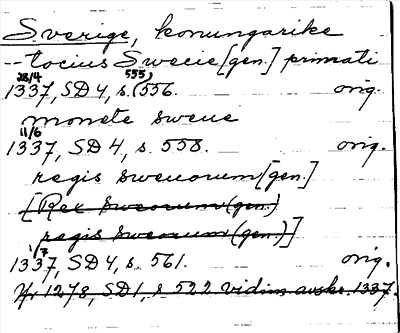 Sverige, konungarike
-- tocius Swecie [gen.] primati
28/4 555,
1337, SD 4, s. (556. orig.
monete sweue
11/6
1337, SD 4, s. 558. orig.
regis sweuorum [gen.]
[Rex Sweorum (gen.)
regis sweorum (gen.)]
1/7
1337, SD 4, s. 561. orig.
Yr 1278, SD 1, s 522 vidim. avskr. 1337.